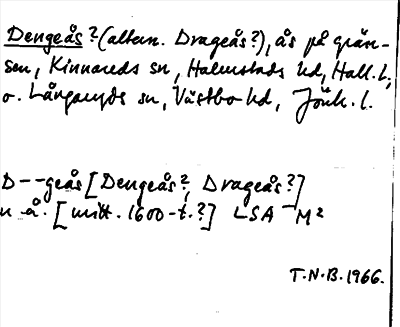 Dengeås? (altern. Drageås?), ås på grän-
sen, Kinnareds sn, Halmstads hd, Hall. l.,
o. Långaryds sn, Västbo hd, Jönk. l.
D--geås [Dengeås?, Drageås?]
u. å. [mitt. 1600-t.?] LSA M2
T.N.B. 1966.